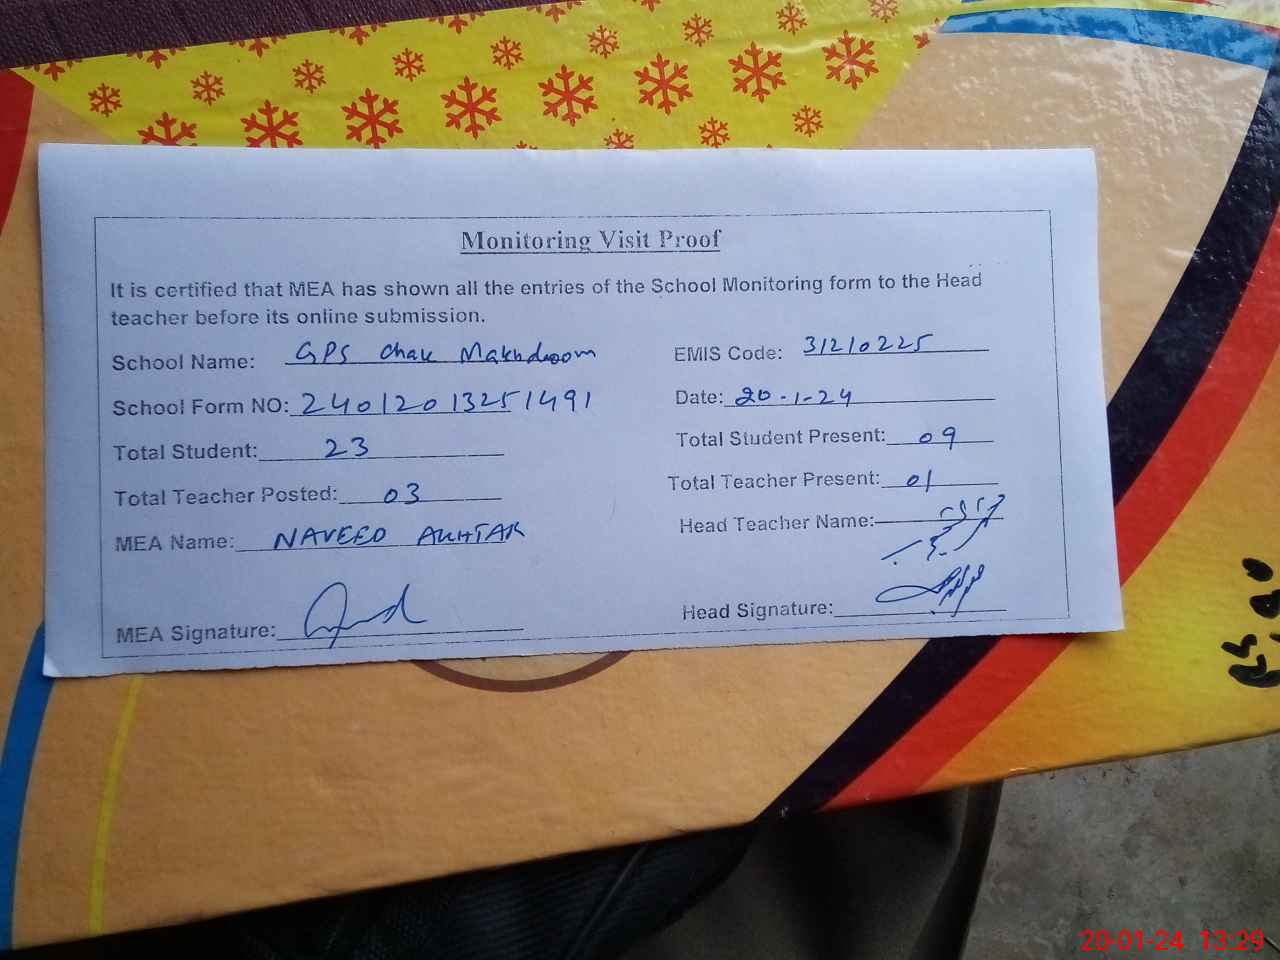 Monitoring Visit Proof
It is certified that MEA has shown all the entries of the School Monitoring form to the Head
teacher before its online submission.
School Name: GPS Chak Makhdoom
EMIS Code: 31210225
School Form NO: 24012013251491
Date: 20-1-24
Total Student: 23
Total Student Present: 09
Total Teacher Posted: 03
Total Teacher Present: 01
MEA Name: NAVEED AKHTAR
Head Teacher Name:
MEA Signature:
Head Signature:
20-01-24 13:29